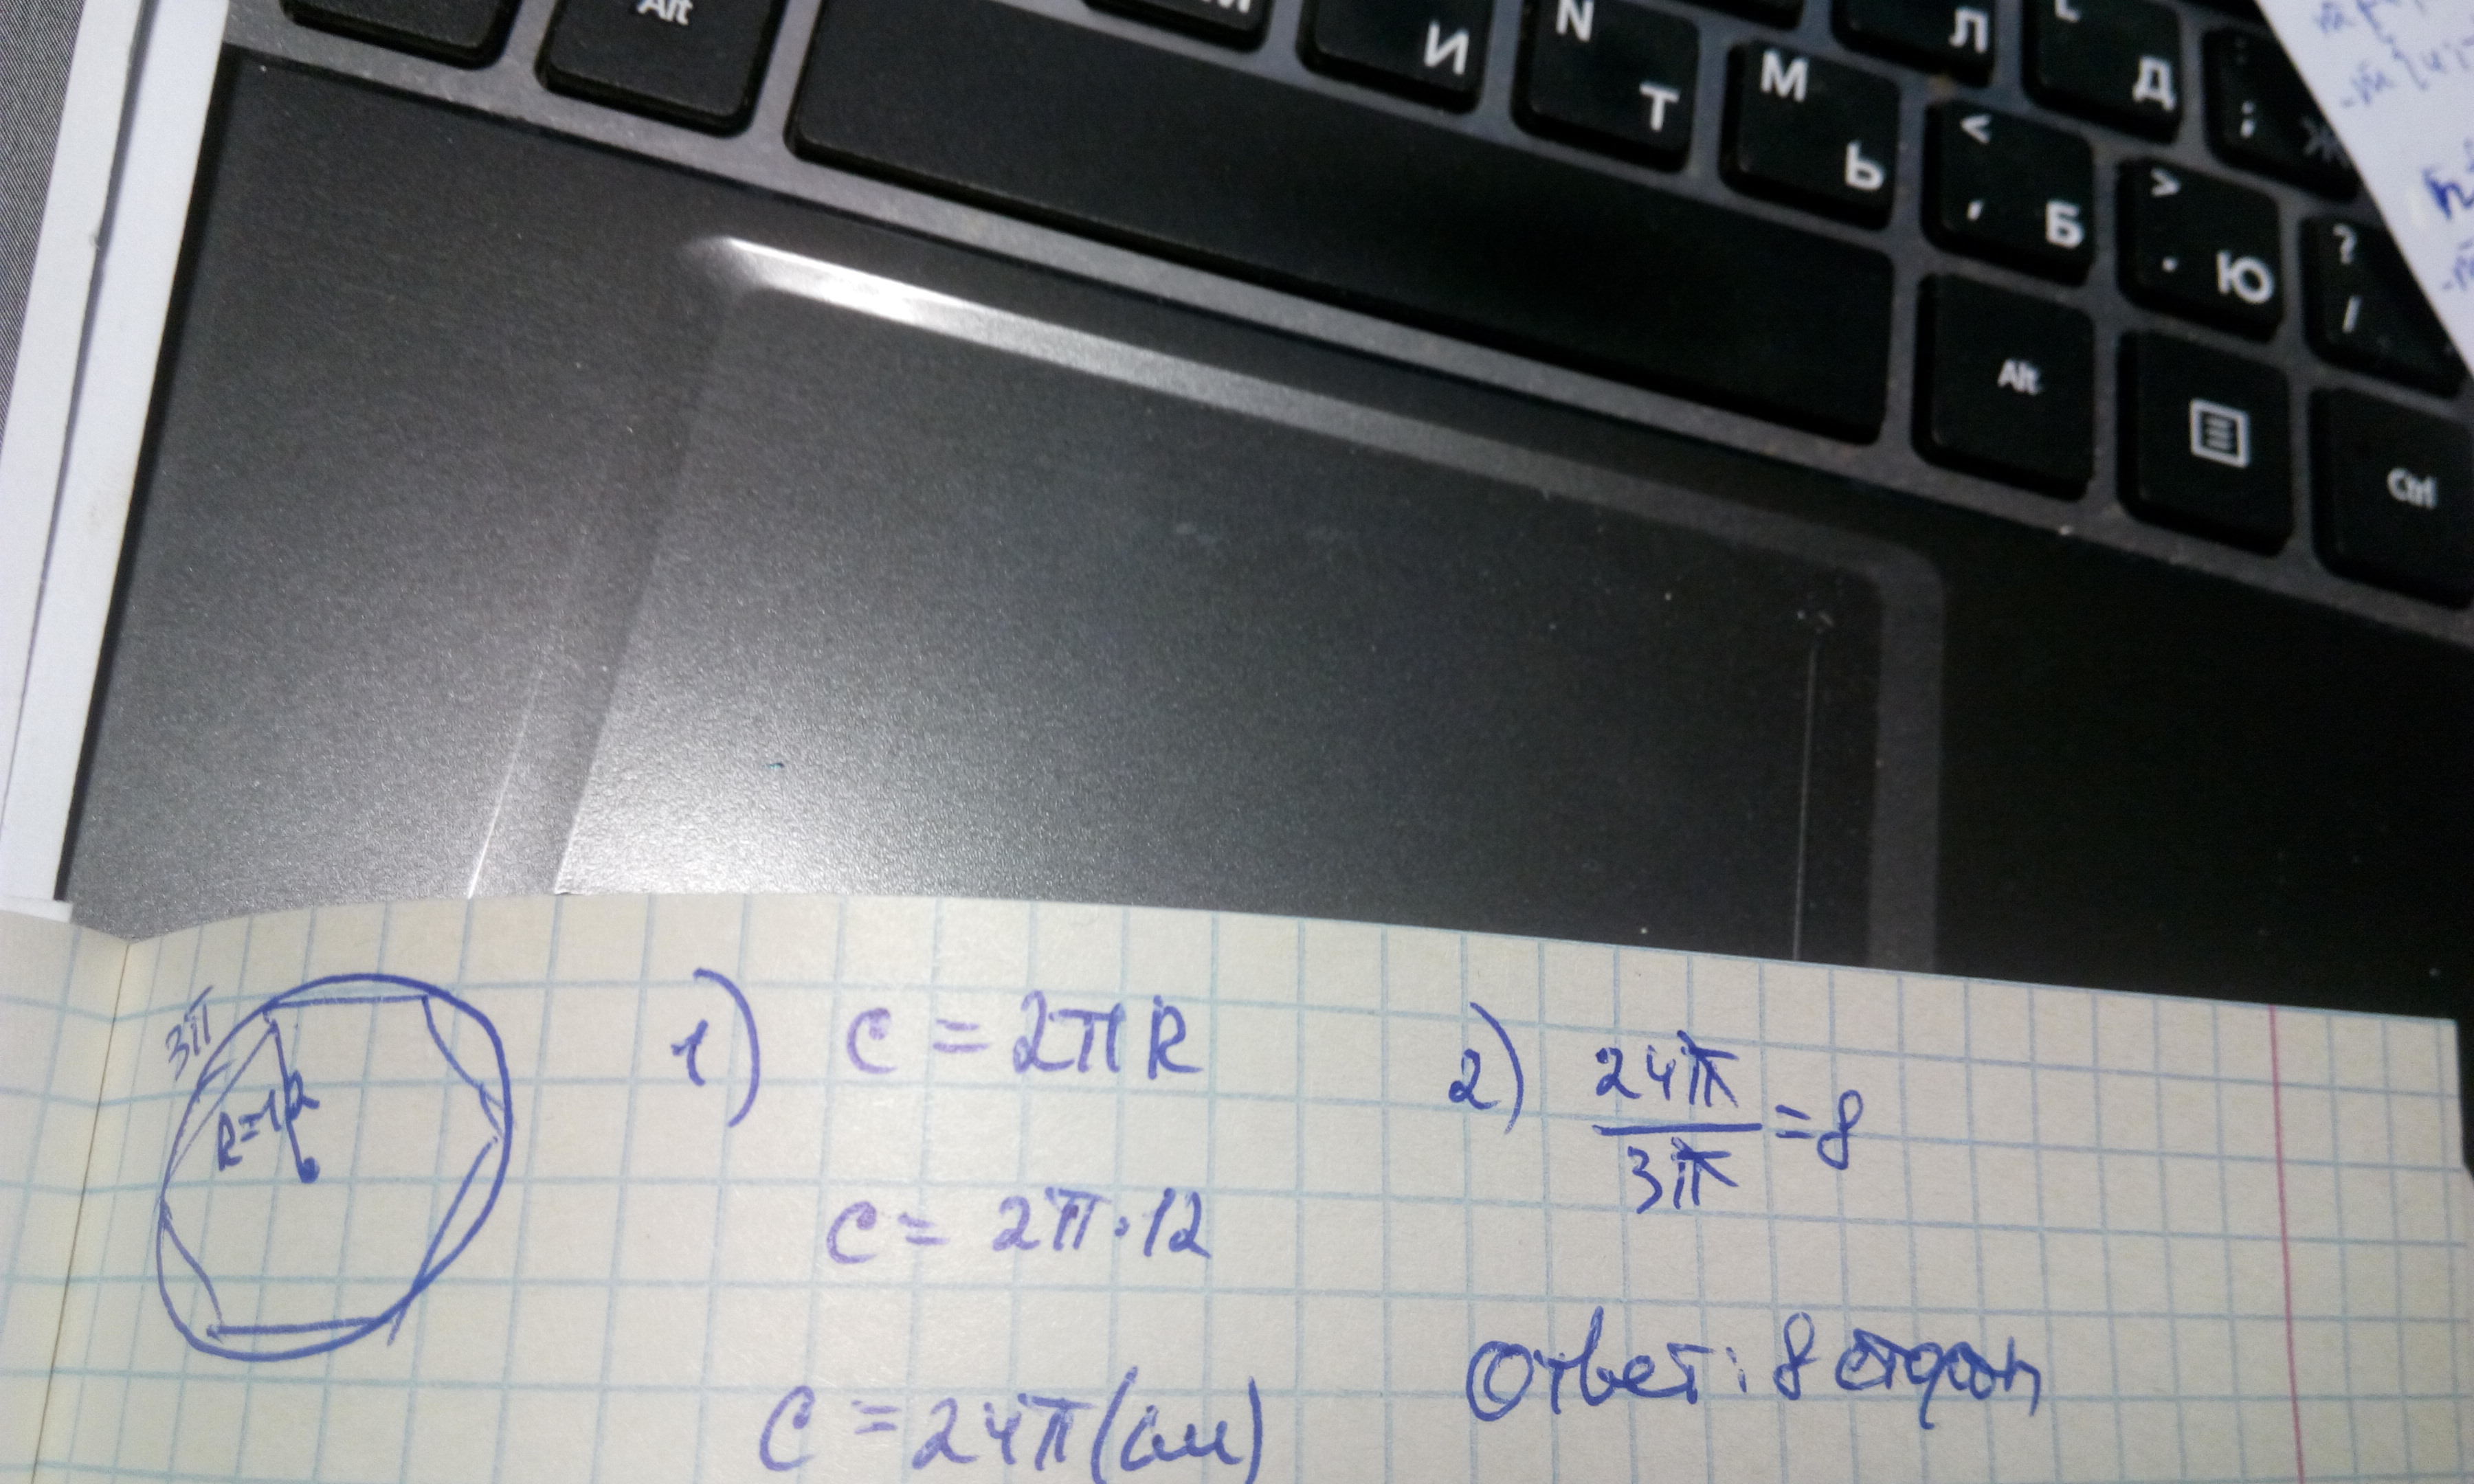 Alt
И
N Т
М Ь
Л
Д
< , Б
> . Ю
; Ж
? /
Alt
Ctrl
3π
R=12
1) C = 2πR
C = 2π·12
C = 24π (см)
2) 24π
3π
=8
Ответ: 8 сторон